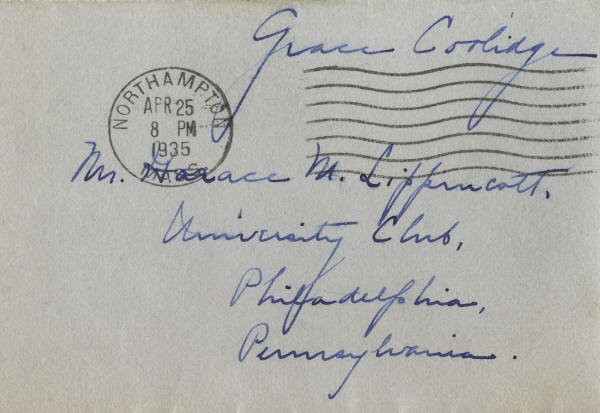 Grace Coolidge
NORTHAMPTON
APR 25
8 PM
1935
MASS.
Mr. Horace M. Lippincott,
University Club,
Philadelphia,
Pennsylvania.